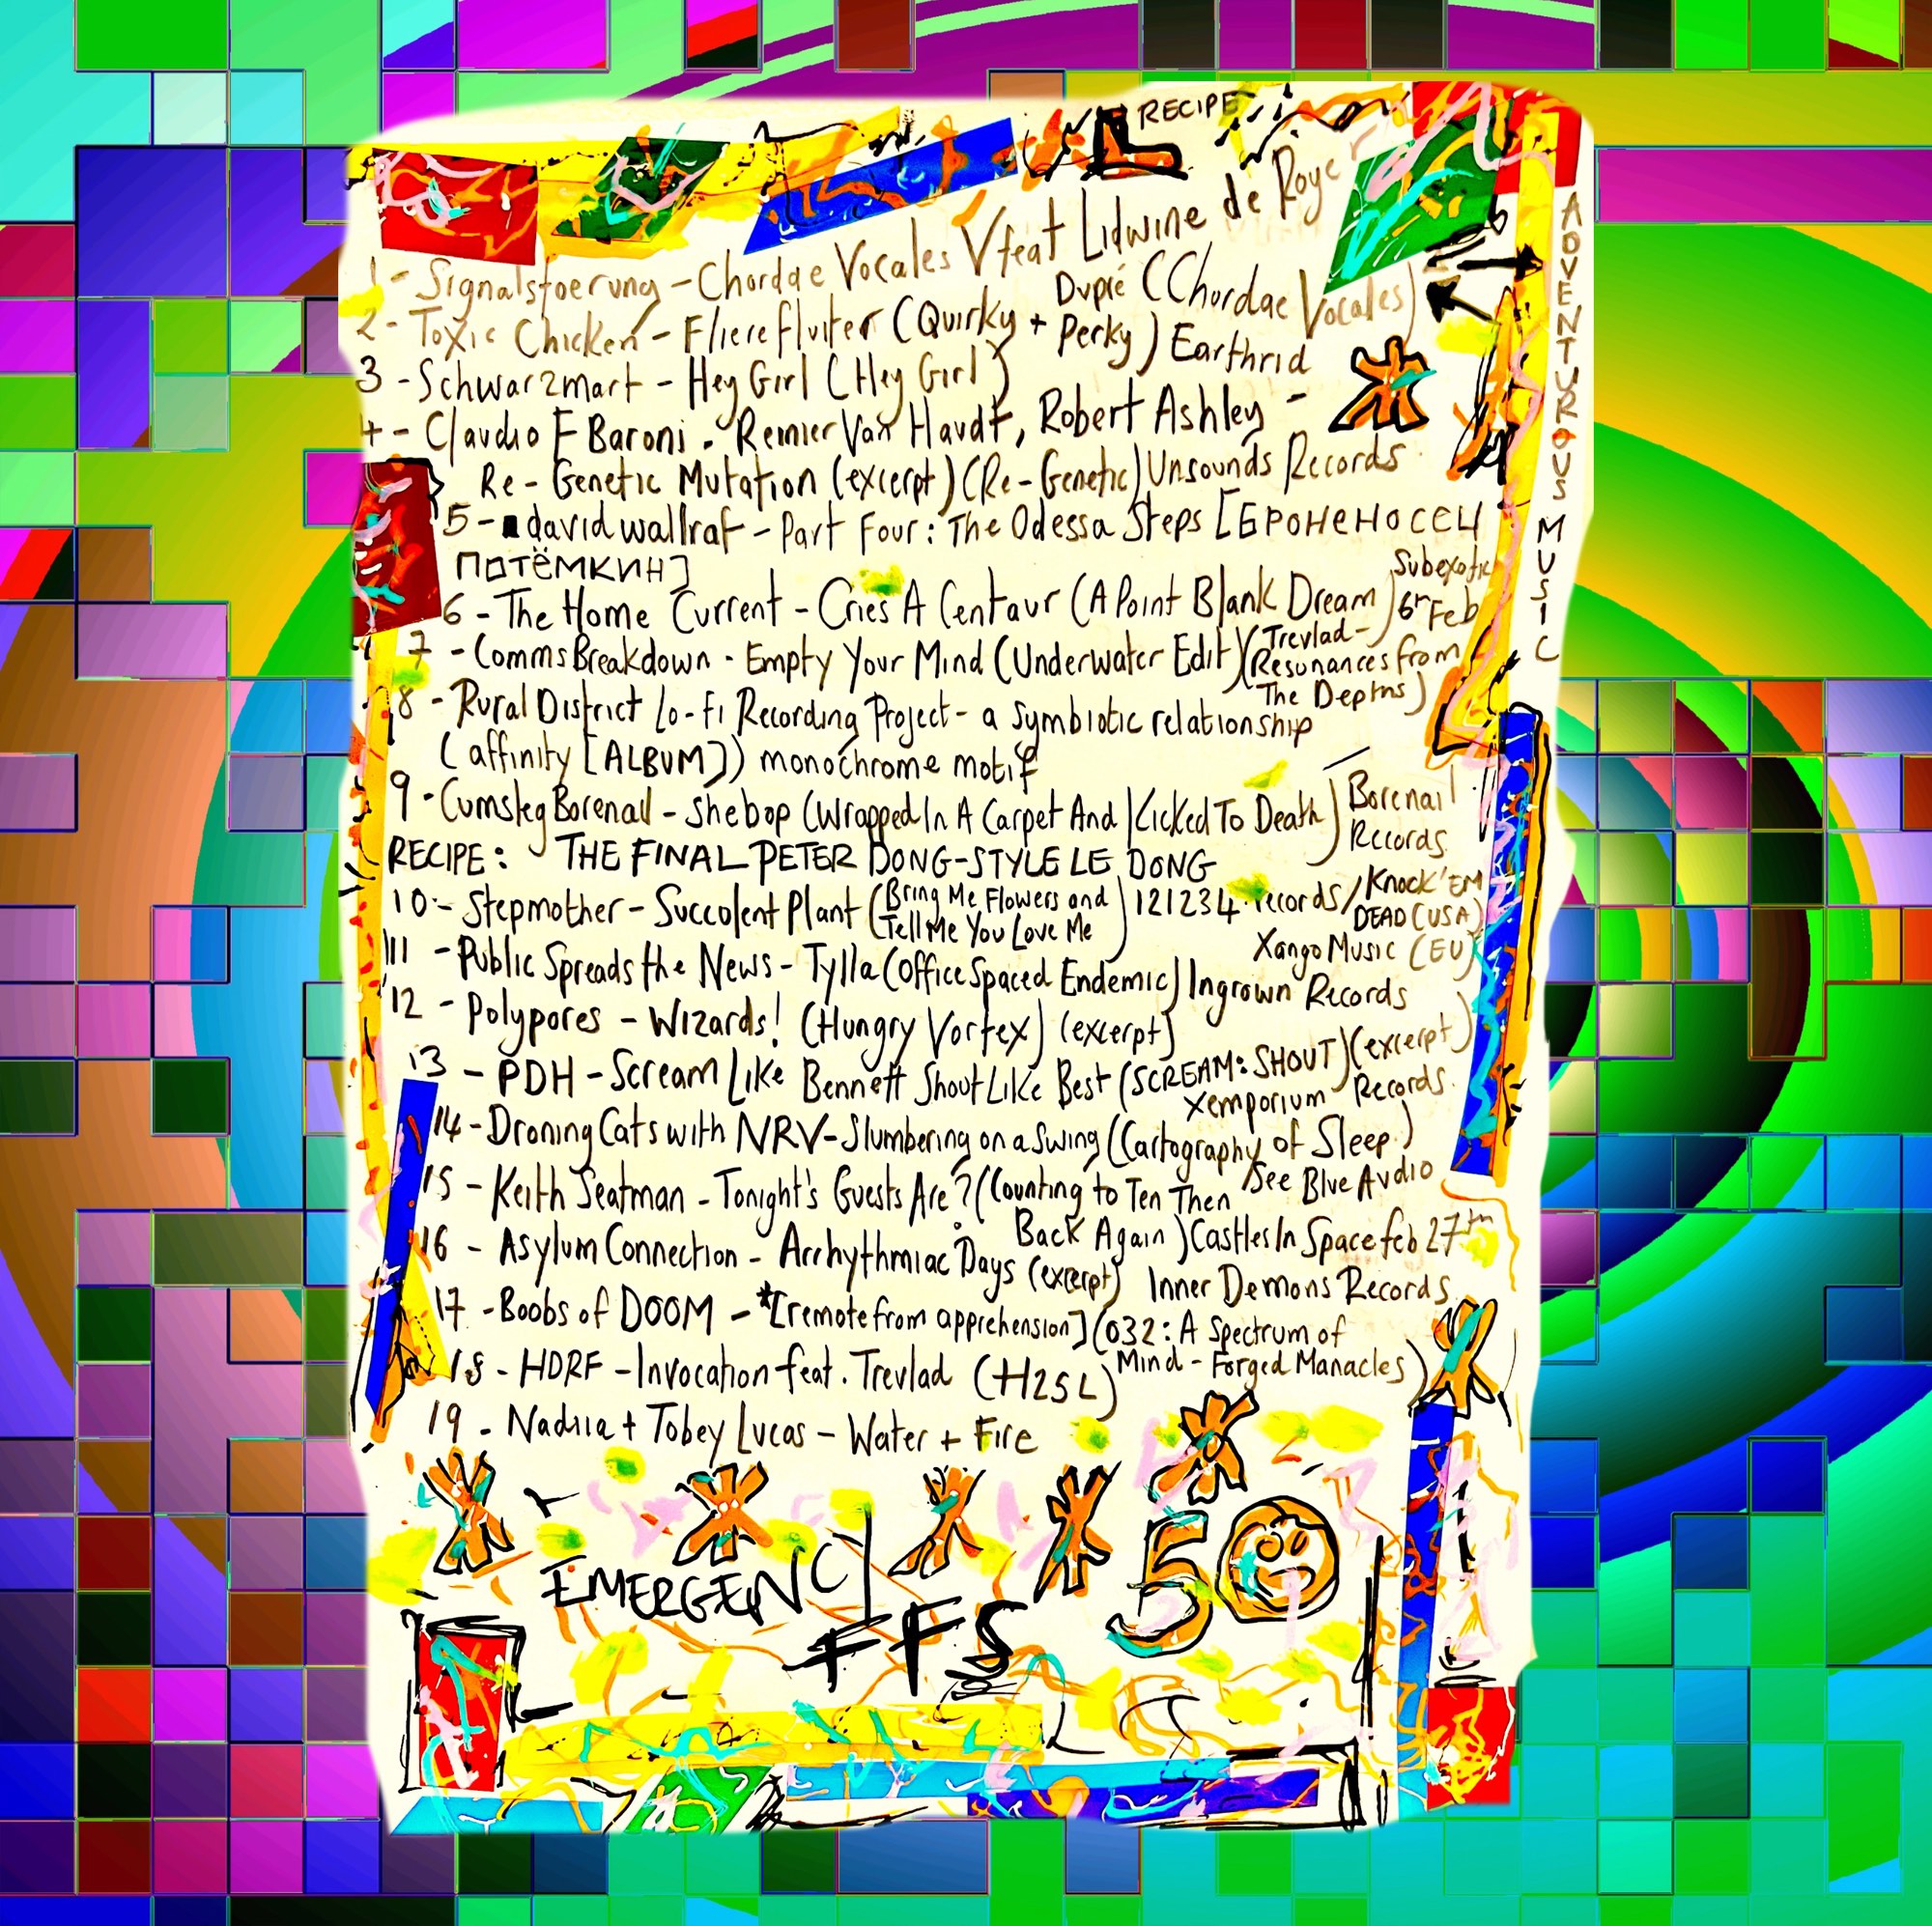 RECIPE
ADVENTUROUS MUSIC
1 - Signalstoerung - Chordae Vocales V feat Lidwine de Royer
Dupré (Chordae Vocales)
2 - Toxic Chicken - Flierefluiter (Quirky + Perky) Earthrid
3 - Schwarzmart - Hey Girl (Hey Girl)
4 - Claudio F Baroni. Reinier Van Haudt, Robert Ashley -
Re-Genetic Mutation (excerpt) (Re-Genetic) Unsounds Records
5 - david wallraf - Part Four: The Odessa Steps [БРОНЕНОСЕЦ
ПОТЁМКИН]
6 - The Home Current - Cries A Centaur (A Point Blank Dream) Subexotic
6th Feb
7 - Comms Breakdown - Empty Your Mind (Underwater Edit) (Trevlad -
Resonances from
The Depths)
8 - Rural District Lo-Fi Recording Project - a symbiotic relationship
(affinity [ALBUM]) monochrome motif
9 - Cumsleg Borenail - Shebop (Wrapped In A Carpet And Kicked To Death) Borenail
Records
RECIPE: THE FINAL PETER DONG-STYLE LE DONG
10 - Stepmother - Succulent Plant (Bring Me Flowers and
Tell Me You Love Me) 121234 records / Knock 'EM
DEAD (USA)
Xango Music (EU)
11 - Public Spreads the News - Tylla (Office Spaced Endemic) Ingrown Records
12 - Polypores - Wizards! (Hungry Vortex) (excerpt)
13 - PDH - Scream Like Bennett Shout Like Best (SCREAM: SHOUT) (excerpt)
Xemporium Records
14 - Droning Cats with NRV - Slumbering on a Swing (Cartography of Sleep)
See Blue Audio
15 - Keith Seatman - Tonight's Guests Are? (Counting to Ten Then
Back Again) Castles In Space feb 27th
16 - Asylum Connection - Arrhythmiac Days (excerpt) Inner Demons Records
17 - Boobs of DOOM - *[remote from apprehension] (032: A Spectrum of
Mind-Forged Manacles)
18 - HDRF - Invocation feat. Trevlad (H25L)
19 - Nadiia + Tobey Lucas - Water + Fire
50
EMERGENCY
FFS